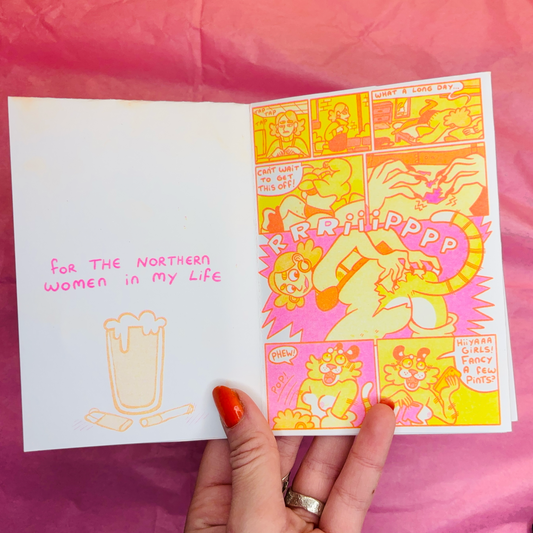 for THE NORTHERN
WOMEN in MY LIFE
TAP
TAP
WHAT A LONG DAY...
CAN'T WAIT
TO GET
THIS OFF!
RRRRiiiPPPP
PHEW!
POP!
HiiYARA
GIRLS!
FANCY
A FEW
PINTS?